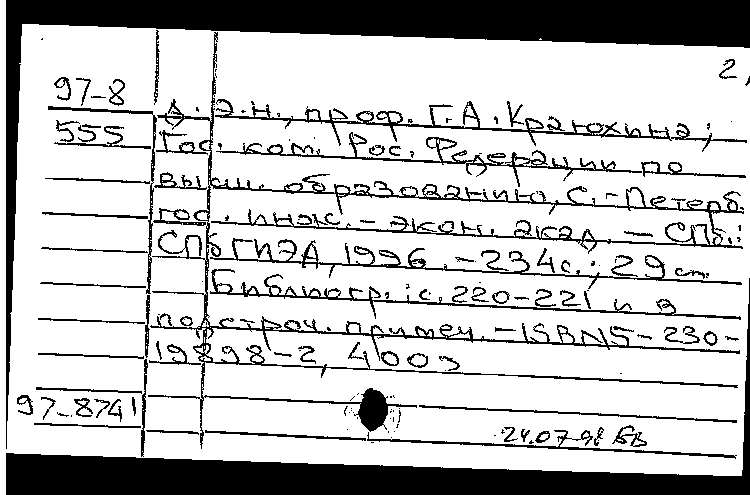 2,
97-8
555
д.э.н., проф. Г.А. Краюхина;
Гос. ком. Рос. Федерации по
высш. образованию, С.-Петерб.
гос. инж.-экон. акад. - СПб.:
СПбГИЭА, 1996. - 234с.; 29см.
Библиогр.: с. 220-221 и в
подстроч. примеч. - ISBN 5-230-
19898-2, 400э
97-8741
24.07-98 БВ